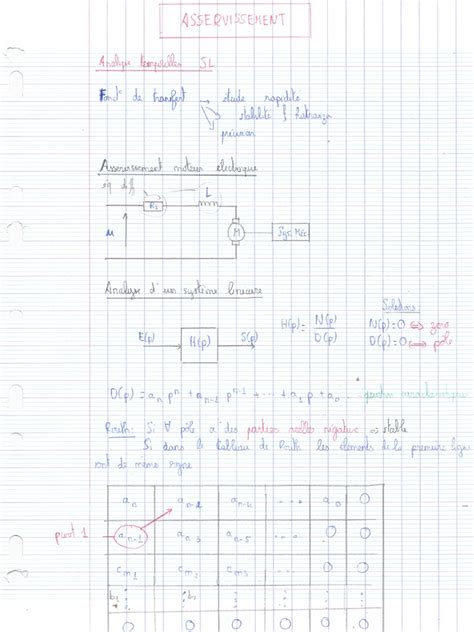 ASSERVISSEMENT
Analyse temporelle SL
Fonct° de transfert → étude rapidité
stabilité
précision
Asservissement moteur électrique
eq diff
R1
L
u
M
Sys. Méc
Analyse d'un système linéaire
E(p)
H(p)
S(p)
H(p) = N(p) / D(p)
Solutions:
N(p)=0 ⇔ zéro
D(p)=0 ⇔ pôle
D(p) = a_n p^n + a_{n-1} p^{n-1} + ... + a_1 p + a_0
Routh: Si ∀ pôle a des parties réelles négatives ⇒ stable
Si dans le tableau de Routh les éléments de la première ligne
sont de même signe
a_n a_{n-2} a_{n-4} ... a_0 0
pivot 1 a_{n-1} a_{n-3} a_{n-5} ... 0 0
c_{m1} c_{m2} c_{m3} ... 0 0
0 0 0